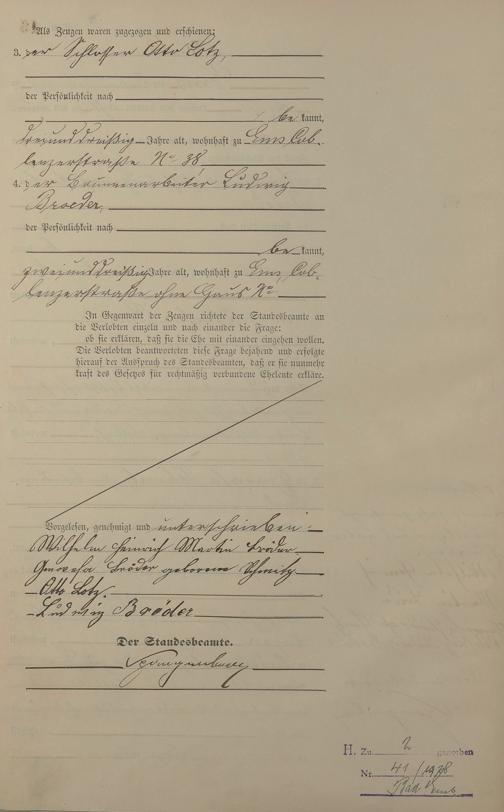 Als Zeugen waren zugezogen und erschienen:
3. der Schlosser Otto Lotz,
der Persönlichkeit nach
bekannt,
dreiunddreißig Jahre alt, wohnhaft zu Ems, Cob-
lenzerstraße No 38
4. der Brunnenarbeiter Ludwig
Broeder,
der Persönlichkeit nach
bekannt,
zweiunddreißig Jahre alt, wohnhaft zu Ems, Cob-
lenzerstraße ohne Haus No
In Gegenwart der Zeugen richtete der Standesbeamte an
die Verlobten einzeln und nach einander die Frage:
ob sie erklären, daß sie die Ehe mit einander eingehen wollen.
Die Verlobten beantworteten diese Frage bejahend und erfolgte
hierauf der Ausspruch des Standesbeamten, daß er sie nunmehr
kraft des Gesetzes für rechtmäßig verbundene Eheleute erkläre.
Vorgelesen, genehmigt und unterschrieben:
Wilhelm Heinrich Martin Bröder
Bröder geborene Schmitz
Otto Lotz.
Ludwig Broeder
Der Standesbeamte.
H. Zu 2 gestorben
Nr. 41/1978
Bad Ems